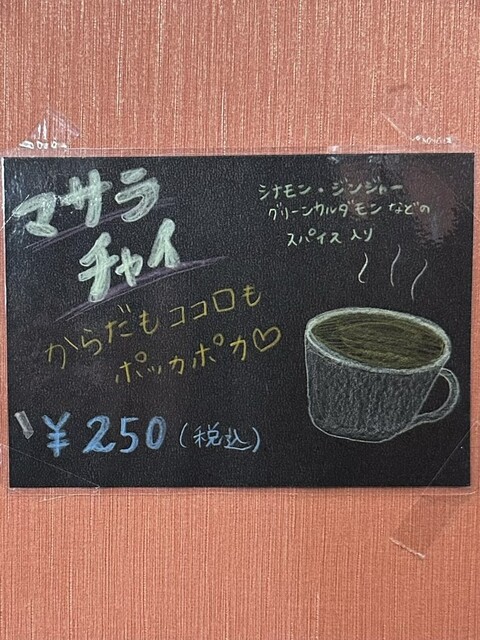 マサラ
チャイ
シナモン・ジンジャー
グリーンカルダモンなどの
スパイス入り
からだもココロも
ポッカポカ♡
¥250(税込)